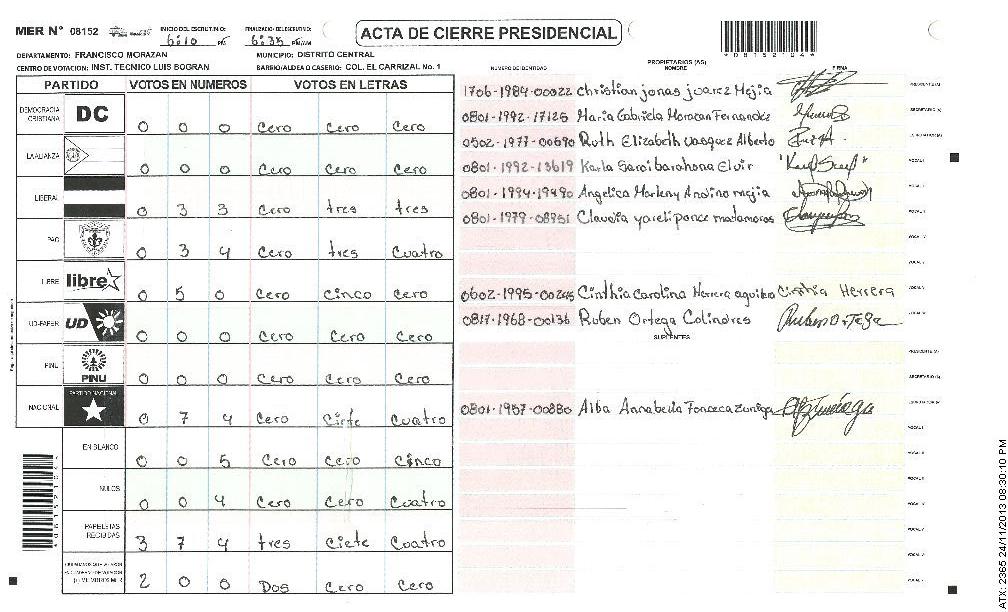 MER N° 08152
INICIO DEL ESCRUTINIO: 6:10 PM
FINALIZACIÓN DEL ESCRUTINIO: 6:35 PM/AM
ACTA DE CIERRE PRESIDENCIAL
DEPARTAMENTO: FRANCISCO MORAZAN
MUNICIPIO: DISTRITO CENTRAL
CENTRO DE VOTACION: INST. TECNICO LUIS BOGRAN
BARRIO/ALDEA O CASERIO: COL. EL CARRIZAL No. 1
PARTIDO VOTOS EN NUMEROS VOTOS EN LETRAS
DEMOCRACIA CRISTIANA DC 0 0 0 Cero Cero Cero
LA ALIANZA 0 0 0 Cero Cero Cero
LIBERAL 0 3 3 Cero tres tres
PAC 0 3 4 Cero tres Cuatro
LIBRE libre 0 5 0 Cero Cinco Cero
UD-FAPER UD 0 0 0 Cero Cero Cero
PINU PINU 0 0 0 Cero Cero Cero
NACIONAL PARTIDO NACIONAL 0 7 4 Cero Ciete Cuatro
EN BLANCO 0 0 5 Cero Cero Cinco
NULOS 0 0 4 Cero Cero Cuatro
PAPELETAS RECIBIDAS 3 7 4 tres Ciete Cuatro
2 0 0 Dos Cero Cero
NUMERO DE IDENTIDAD PROPIETARIOS (AS) NOMBRE FIRMA
1706-1984-00022 Christian jonas juarez Mejia PRESIDENTE (A)
0801-1992-17125 Maria Gabriela Moracan Fernandez SECRETARIO (A)
0502-1977-00690 Ruth Elizabeth Vasquez Alberto
0801-1992-13619 Karla Saroi barahona Elvir VOCAL I
0801-1994-19490 Angelica Marleny Andino mejia
0801-1979-08951 Claudia yareli ponce matamoros
0602-1995-00245 Cinthia Carolina Herrera aguilar Cinthia Herrera
0817-1968-00136 Ruben Ortega Colindres Ruben Ortega
SUPLENTES
PRESIDENTE (A)
SECRETARIO (A)
0801-1957-00880 Alba Annabella Fonceca Zuniga
VOCAL I
ATX: 2365 24/11/2013 08:30:10 PM